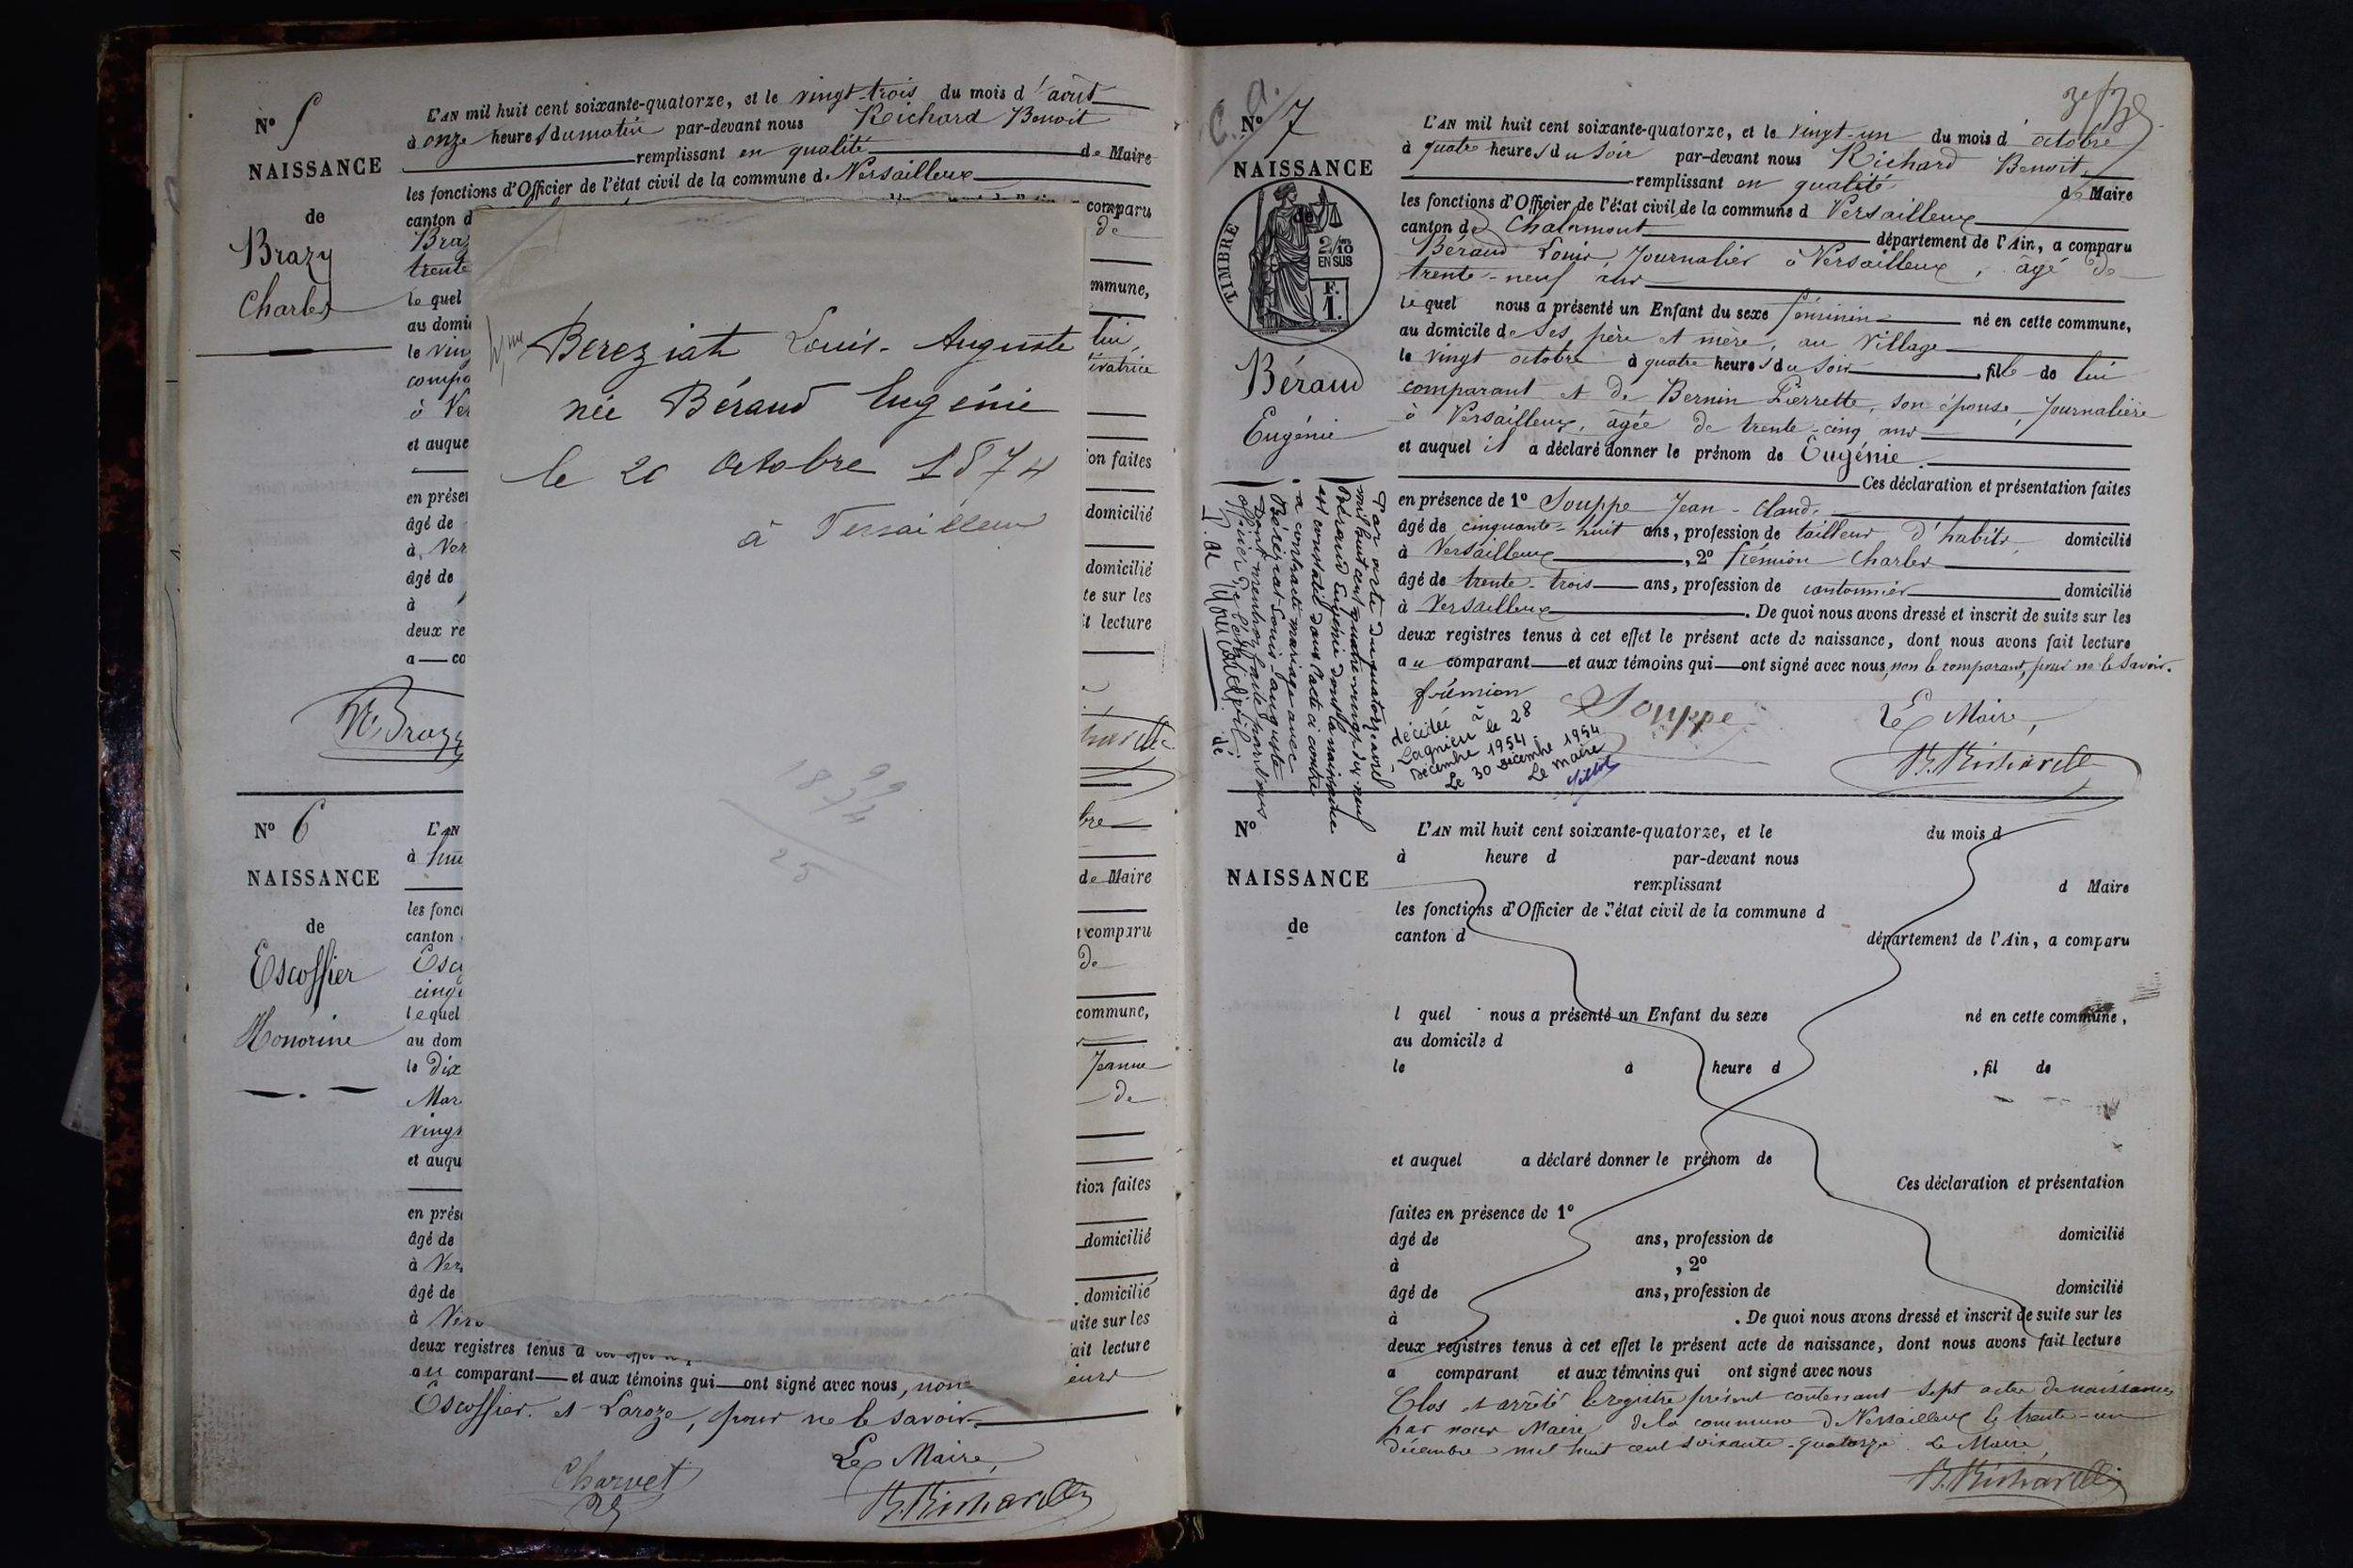 N° 5
NAISSANCE
de
Brazy
Charles
L'AN mil huit cent soixante-quatorze, et le vingt-trois du mois d'août
à onze heures du matin par-devant nous Richard Benoit
remplissant en qualité de Maire
les fonctions d'Officier de l'état civil de la commune de Versailleux
canton d comparu
Braz de
trente
le quel mmune,
au domi lui,
le vin ivatrice
compa
à Ver
et auque
on faites
en prése
âgé de domicilié
à Ver
âgé de domicilié
à te sur les
deux re it lecture
a co
Bereziat Louis-Auguste
née Béraud Eugénie
le 20 octobre 1874
à Versailleux
1899
1874
25
N° 6
NAISSANCE
de
Escoffier
Honorine
L'AN bre
à
de Maire
les fonct
canton comparu
Esco de
cinqu
lequel commune,
au dom
le dix Jeanne
Mar de
vingt
et auqu
tion faites
en prés
âgé de domicilié
à Ver
âgé de domicilié
à Vers uite sur les
deux registres tenus à cet effet ait lecture
au comparant et aux témoins qui ont signé avec nous, non
Escoffier et Laroze, pour ne le savoir.
Le Maire,
Charvet
B. Richard
N° 7
NAISSANCE
de
TIMBRE
2/10
EN SUS
F.
1.
Béraud
Eugénie
L'AN mil huit cent soixante-quatorze, et le vingt-un du mois d'octobre
à quatre heures du soir par-devant nous Richard Benoit
remplissant en qualité de Maire
les fonctions d'Officier de l'état civil de la commune d Versailleux
canton de Chalamont département de l'Ain, a comparu
Béraud Louis, Journalier à Versailleux, âgé de
trente-neuf ans
le quel nous a présenté un Enfant du sexe féminin né en cette commune,
au domicile de ses père et mère, au Village
le vingt octobre à quatre heures du soir, fille de lui
comparant et de Bernin Pierrette, son épouse, Journalière
à Versailleux, âgée de trente-cinq ans
et auquel il a déclaré donner le prénom de Eugénie.
Ces déclaration et présentation faites
en présence de 1° Souppe Jean-Claude
âgé de cinquante-huit ans, profession de tailleur d'habits domicilié
à Versailleux, 2° frémion Charles
âgé de trente-trois ans, profession de cantonnier domicilié
à Versailleux. De quoi nous avons dressé et inscrit de suite sur les
deux registres tenus à cet effet le présent acte de naissance, dont nous avons fait lecture
au comparant et aux témoins qui ont signé avec nous, non le comparant, pour ne le savoir.
frémion
Souppe
Le Maire,
B. Richard
Par acte du quatorze avril
mil huit cent quatre vingt dix neuf
Béraud Eugénie dont la naissance
est constatée dans l'acte ci contre
a contracté mariage avec
Béreziat Louis-auguste
Dont mention faite par nous
officier de l'état civil
décédée à
Lagnieu le 28
Décembre 1954.
Le 30 Décembre 1954
Le Maire
N°
NAISSANCE
de
L'AN mil huit cent soixante-quatorze, et le du mois d
à heure d par-devant nous
remplissant d Maire
les fonctions d'Officier de l'état civil de la commune d
canton d département de l'Ain, a comparu
l quel nous a présenté un Enfant du sexe né en cette commune,
au domicile d
le à heure d , fil de
et auquel a déclaré donner le prénom de
Ces déclaration et présentation
faites en présence de 1°
âgé de ans, profession de domicilié
à , 2°
âgé de ans, profession de domicilié
à . De quoi nous avons dressé et inscrit de suite sur les
deux registres tenus à cet effet le présent acte de naissance, dont nous avons fait lecture
a comparant et aux témoins qui ont signé avec nous
Clos et arrêté le registre présent contenant sept actes de naissances
par nous Maire de la commune de Versailleux le trente-un
décembre mil huit cent soixante-quatorze. Le Maire,
B. Richard